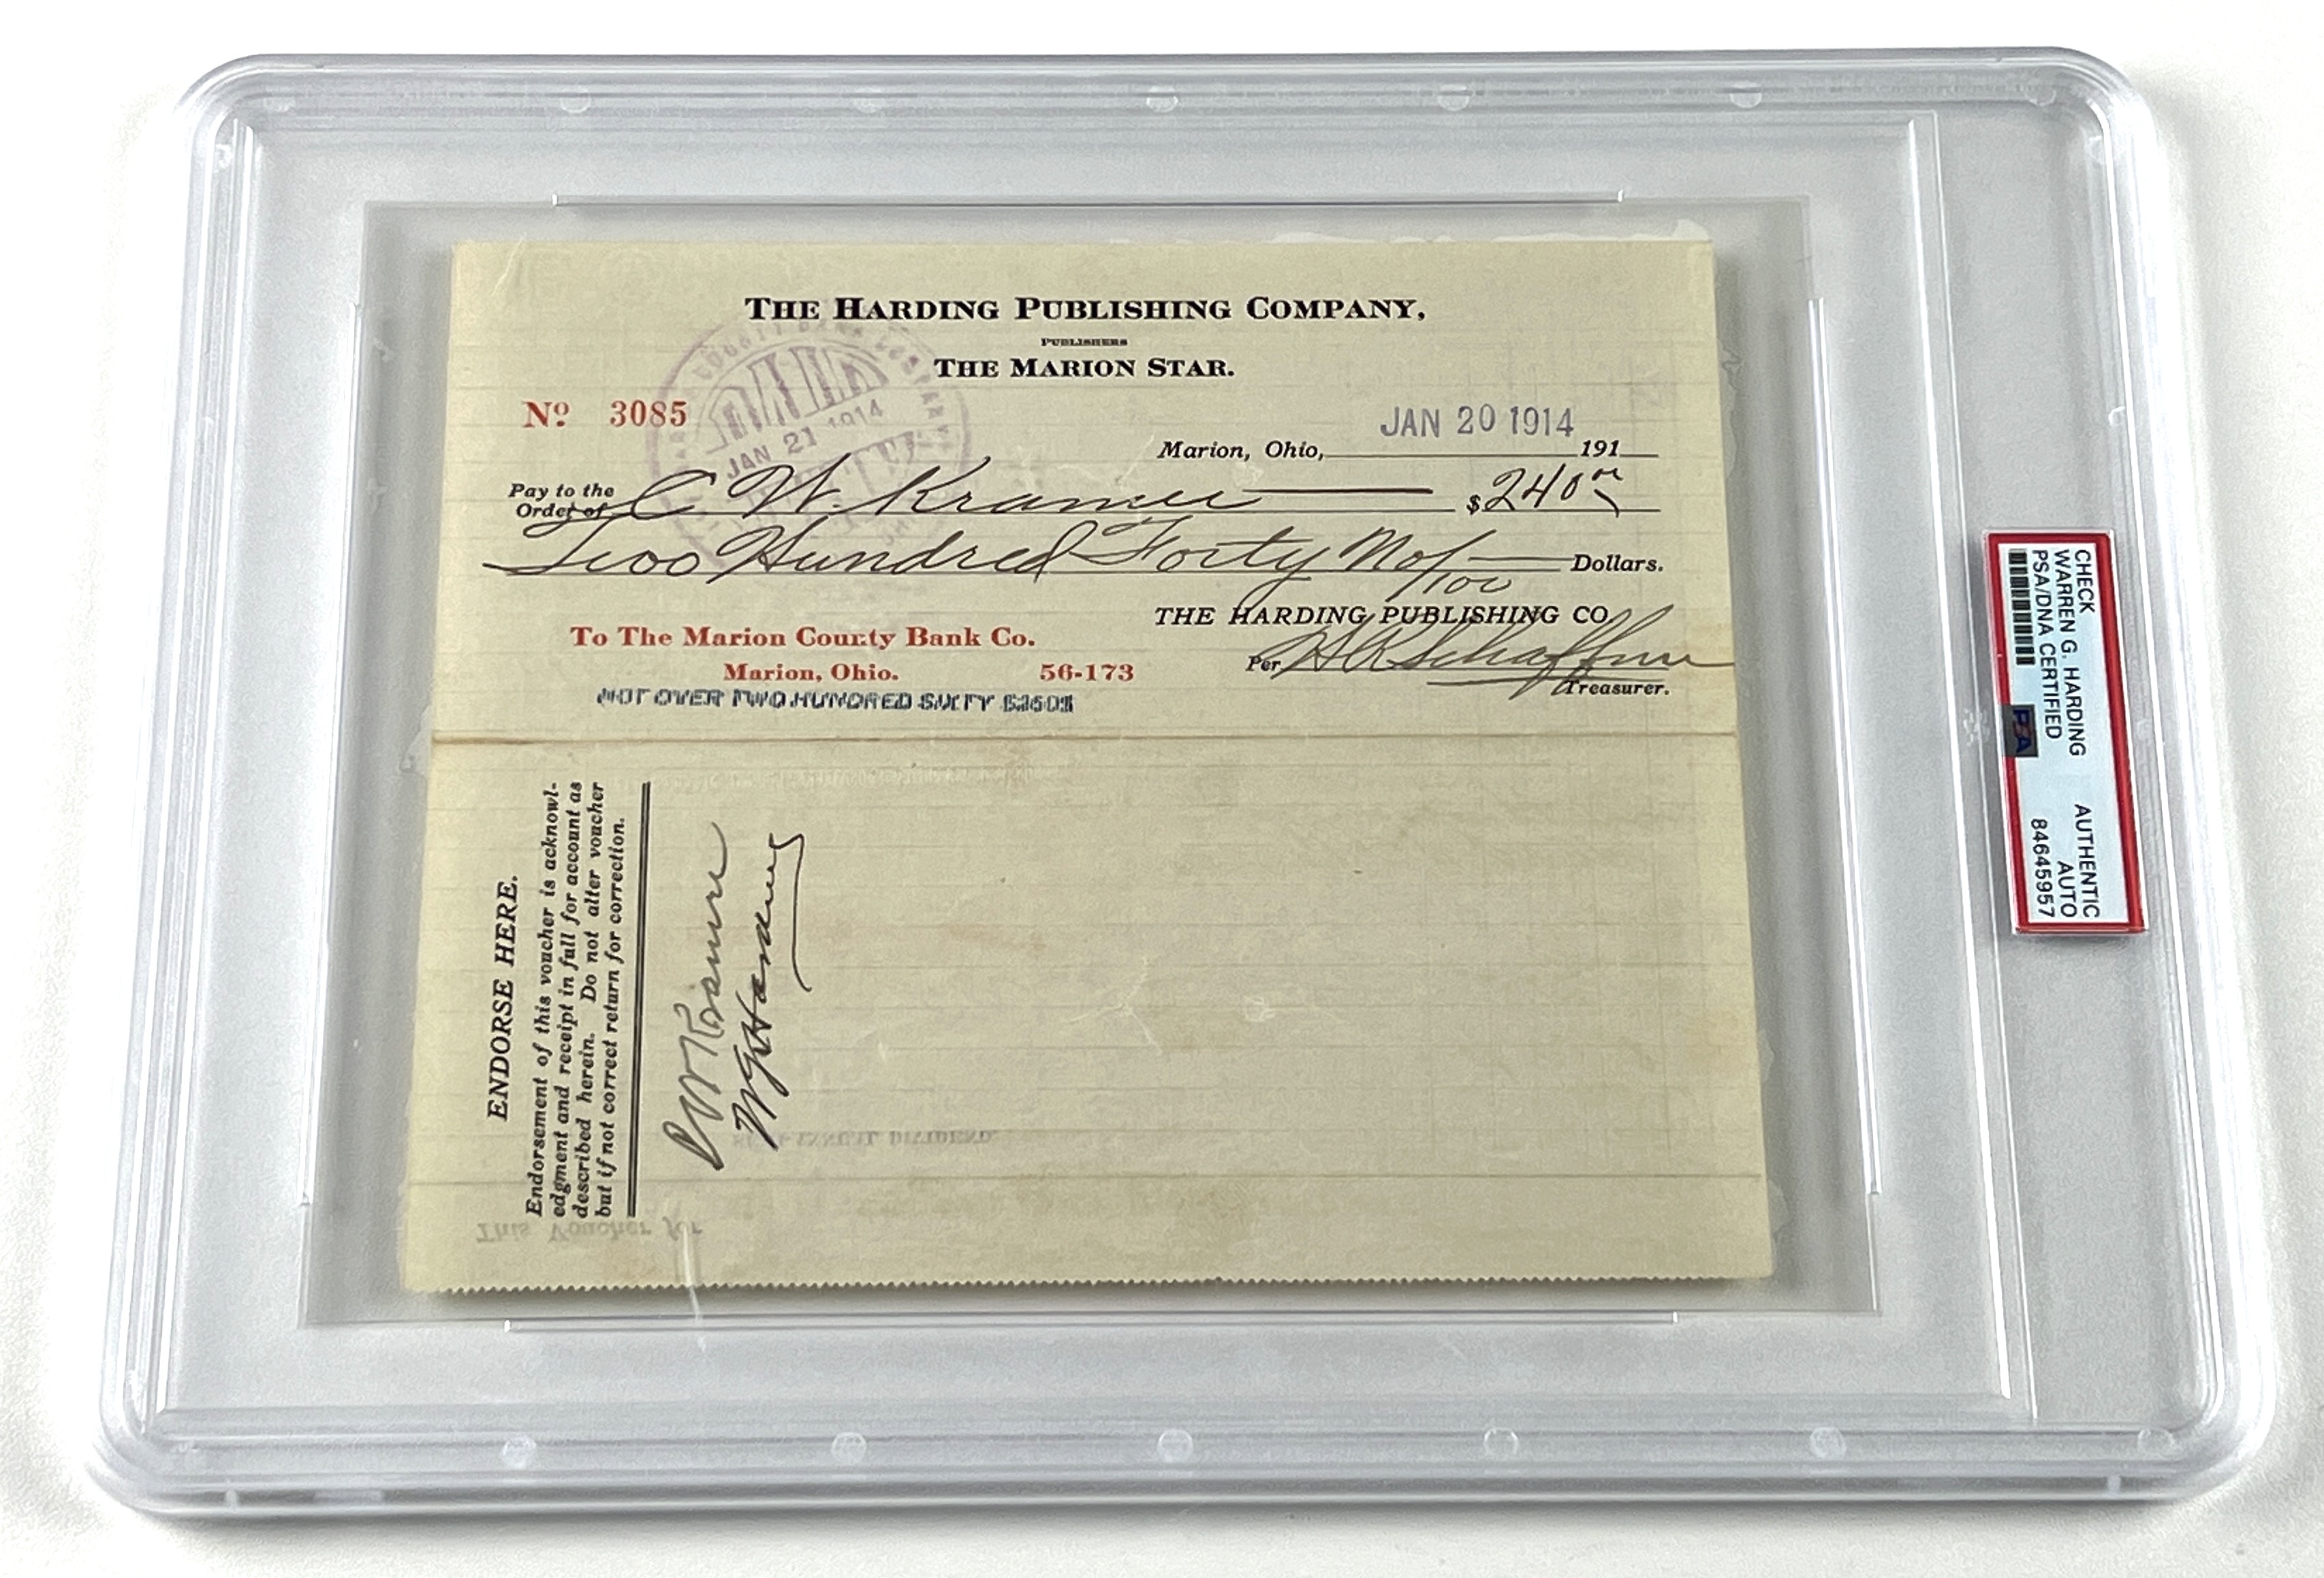 THE HARDING PUBLISHING COMPANY,
PUBLISHERS
THE MARION STAR.
Nº 3085
JAN 21 1914
JAN 20 1914
Marion, Ohio, 191
Pay to the
Order of C. W. Kramer $240
Two Hundred Forty No/100 Dollars.
THE HARDING PUBLISHING CO.
To The Marion County Bank Co.
Per Schaffner
Marion, Ohio. 56-173
Treasurer.
NOT OVER TWO HUNDRED SIXTY $260$
ENDORSE HERE.
Endorsement of this voucher is acknowl-
edgment and receipt in full for account as
described herein. Do not alter voucher
but if not correct return for correction.
C W Kramer
W G Harding
SEMI-ANNUAL DIVIDEND.
This Voucher for
CHECK
WARREN G. HARDING
PSA/DNA CERTIFIED
PSA
AUTHENTIC
AUTO
84645957